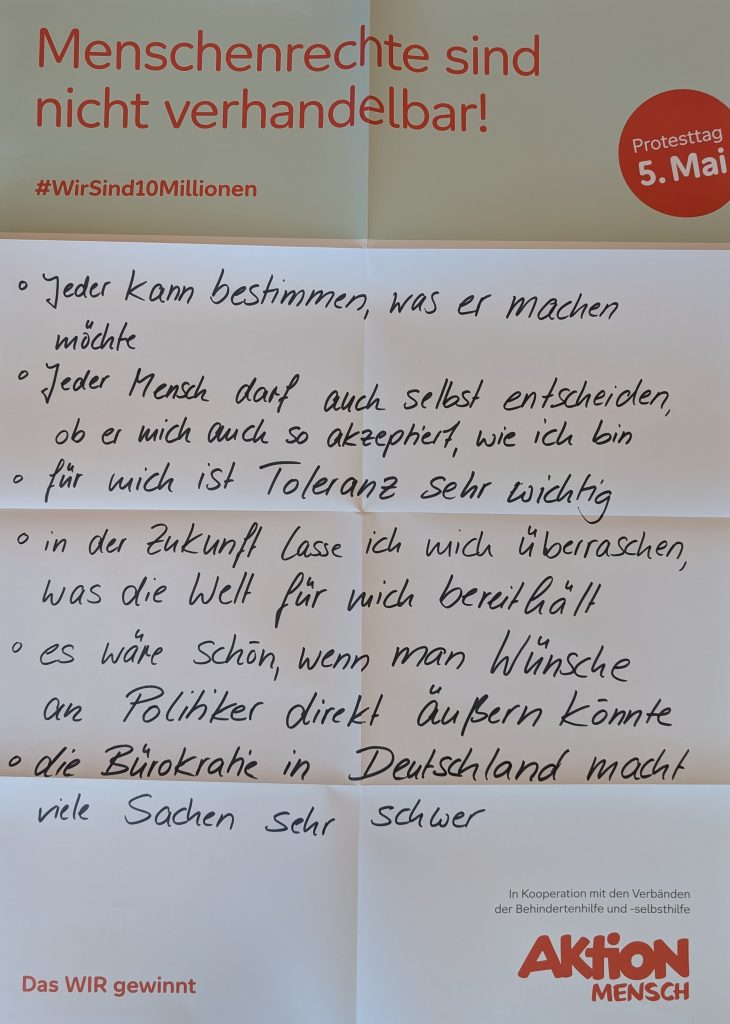 Menschenrechte sind
nicht verhandelbar!
Protesttag
5. Mai
#WirSind10Millionen
° Jeder kann bestimmen, was er machen
möchte
° Jeder Mensch darf auch selbst entscheiden,
ob er mich auch so akzeptiert, wie ich bin
° für mich ist Toleranz sehr wichtig
° in der Zukunft lasse ich mich überraschen,
was die Welt für mich bereithält
° es wäre schön, wenn man Wünsche
an Politiker direkt äußern könnte
° die Bürokratie in Deutschland macht
viele Sachen sehr schwer
In Kooperation mit den Verbänden
der Behindertenhilfe und -selbsthilfe
AKTION
MENSCH
Das WIR gewinnt